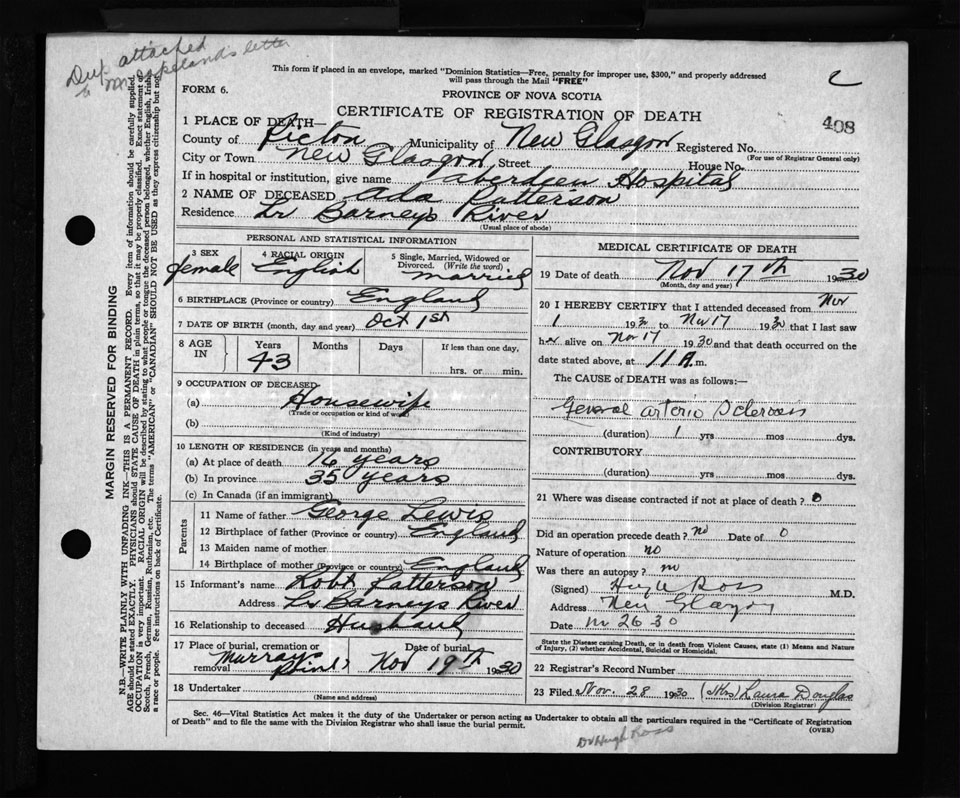 Dup attached
to letter
This form if placed in an envelope, marked "Dominion Statistics—Free, penalty for improper use, $300," and properly addressed
will pass through the Mail "FREE"
FORM 6.
PROVINCE OF NOVA SCOTIA
CERTIFICATE OF REGISTRATION OF DEATH
408
1 PLACE OF DEATH—
County of Picton Municipality of New Glasgow Registered No.
(For use of Registrar General only)
City or Town New Glasgow Street House No.
If in hospital or institution, give name Aberdeen Hospital
2 NAME OF DECEASED Ada Patterson
Residence Lr Barneys River
(Usual place of abode)
PERSONAL AND STATISTICAL INFORMATION
3 SEX 4 RACIAL ORIGIN 5 Single, Married, Widowed or
Divorced. (Write the word)
female English married
6 BIRTHPLACE (Province or country) England
7 DATE OF BIRTH (month, day and year) Oct 1st
8 AGE IN Years Months Days If less than one day,
43 hrs. or min.
9 OCCUPATION OF DECEASED
(a) Housewife
(Trade or occupation or kind of work)
(b)
(Kind of industry)
10 LENGTH OF RESIDENCE (in years and months)
(a) At place of death 16 years
(b) In province 35 years
(c) In Canada (if an immigrant)
Parents
11 Name of father George Lewis
12 Birthplace of father (Province or country) England
13 Maiden name of mother
14 Birthplace of mother (Province or country) England
15 Informant's name Robt Patterson
Address Lr Barneys River
16 Relationship to deceased Husband
17 Place of burial, cremation or removal Date of burial
Murrays Point Nov 19th 1930
18 Undertaker
(Name and address)
MEDICAL CERTIFICATE OF DEATH
19 Date of death Nov 17th 1930
(Month, day and year)
20 I HEREBY CERTIFY that I attended deceased from Nov
1 1930 to Nov 17 1930 that I last saw
her alive on Nov 17 1930 and that death occurred on the
date stated above, at 11 A.m.
The CAUSE of DEATH was as follows:—
General arterio Sclerosis
(duration) 1 yrs mos dys.
CONTRIBUTORY
(duration) yrs mos dys.
21 Where was disease contracted if not at place of death? 0
Did an operation precede death? no Date of 0
Nature of operation no
Was there an autopsy? no
(Signed) Hugh Ross M.D.
Address New Glasgow
Date 26-30
State the Disease causing Death, or in death from Violent Causes, state (1) Means and Nature
of Injury, (2) whether Accidental, Suicidal or Homicidal.
22 Registrar's Record Number
23 Filed Nov. 28 1930 (Mrs) Laura Douglas
(Division Registrar)
Sec. 46—Vital Statistics Act makes it the duty of the Undertaker or person acting as Undertaker to obtain all the particulars required in the "Certificate of Registration
of Death" and to file the same with the Division Registrar who shall issue the burial permit.
(OVER)
Dr Hugh Ross
MARGIN RESERVED FOR BINDING
N.B.—WRITE PLAINLY WITH UNFADING INK—THIS IS A PERMANENT RECORD. Every item of information should be carefully supplied.
AGE should be stated EXACTLY. PHYSICIANS should STATE CAUSE OF DEATH in plain terms, so that it may be properly classified. Exact statement of
OCCUPATION is very important. RACIAL ORIGIN will be described by stating to what people or tongue the deceased person belonged, whether English, Irish,
Scotch, French, German, Russian, Ruthenian, etc. The terms "AMERICAN" or "CANADIAN" SHOULD NOT BE USED as they express citizenship but not
a race or people. See instructions on back of Certificate.